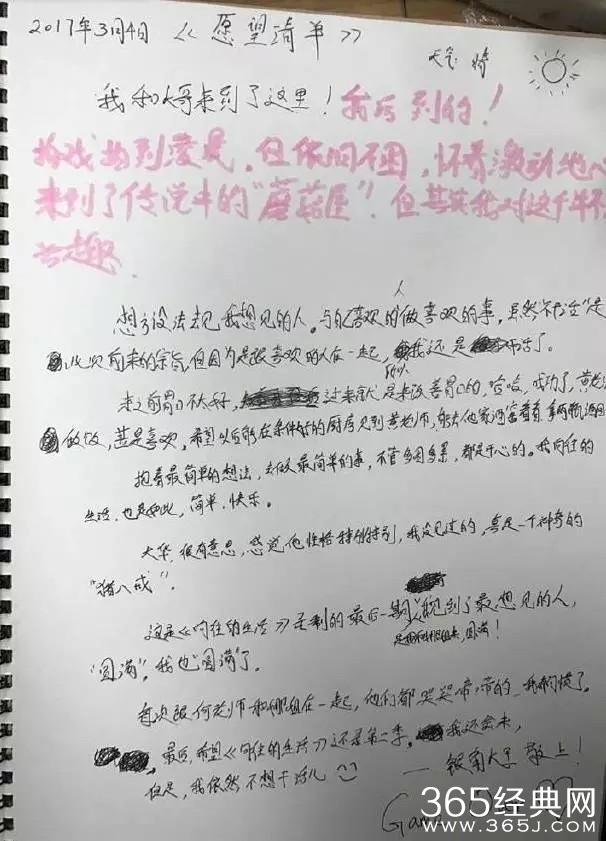 2017年3月4日 《愿望清单》
天气 晴
我和大哥来到了这里！我后到的！
拍戏拍到凌晨，但依旧不困，怀着激动地心
来到了传说中的"蘑菇屋"！但其实我对这个年不
兴趣
想方设法去见我想见的人。与自己喜欢的人做喜欢的事，虽然"不干活"是
此次前来的宗旨，但因为是跟喜欢的人在一起，所以我还是干活了。
来之前胃口不太好，过来就是来改善胃口的，哈哈，成功了，黄老师
做饭，甚是喜欢，希望以后能在条件好的厨房见到黄老师，能去他家
抱着最简单的想法，去做最简单的事，不管多困多累，都是开心的。我向往的
生活，也是如此，简单、快乐。
大华，很有意思，感觉他性格特别特别，我没见过的，真是一个神奇的
"猪八戒"。
这是《向往的生活》录制的最后一期，见到了最想见的人，
圆满！
"圆满"，我也"圆满"了。
首次跟何老师和娜姐在一起，他们都哭哭啼啼的，我都慌了。
最后，希望《向往的生活》还有第二季，我还会来，
但是，我依然不想干活儿
——银角大王 敬上！
365经典网
WWW.365J.COM